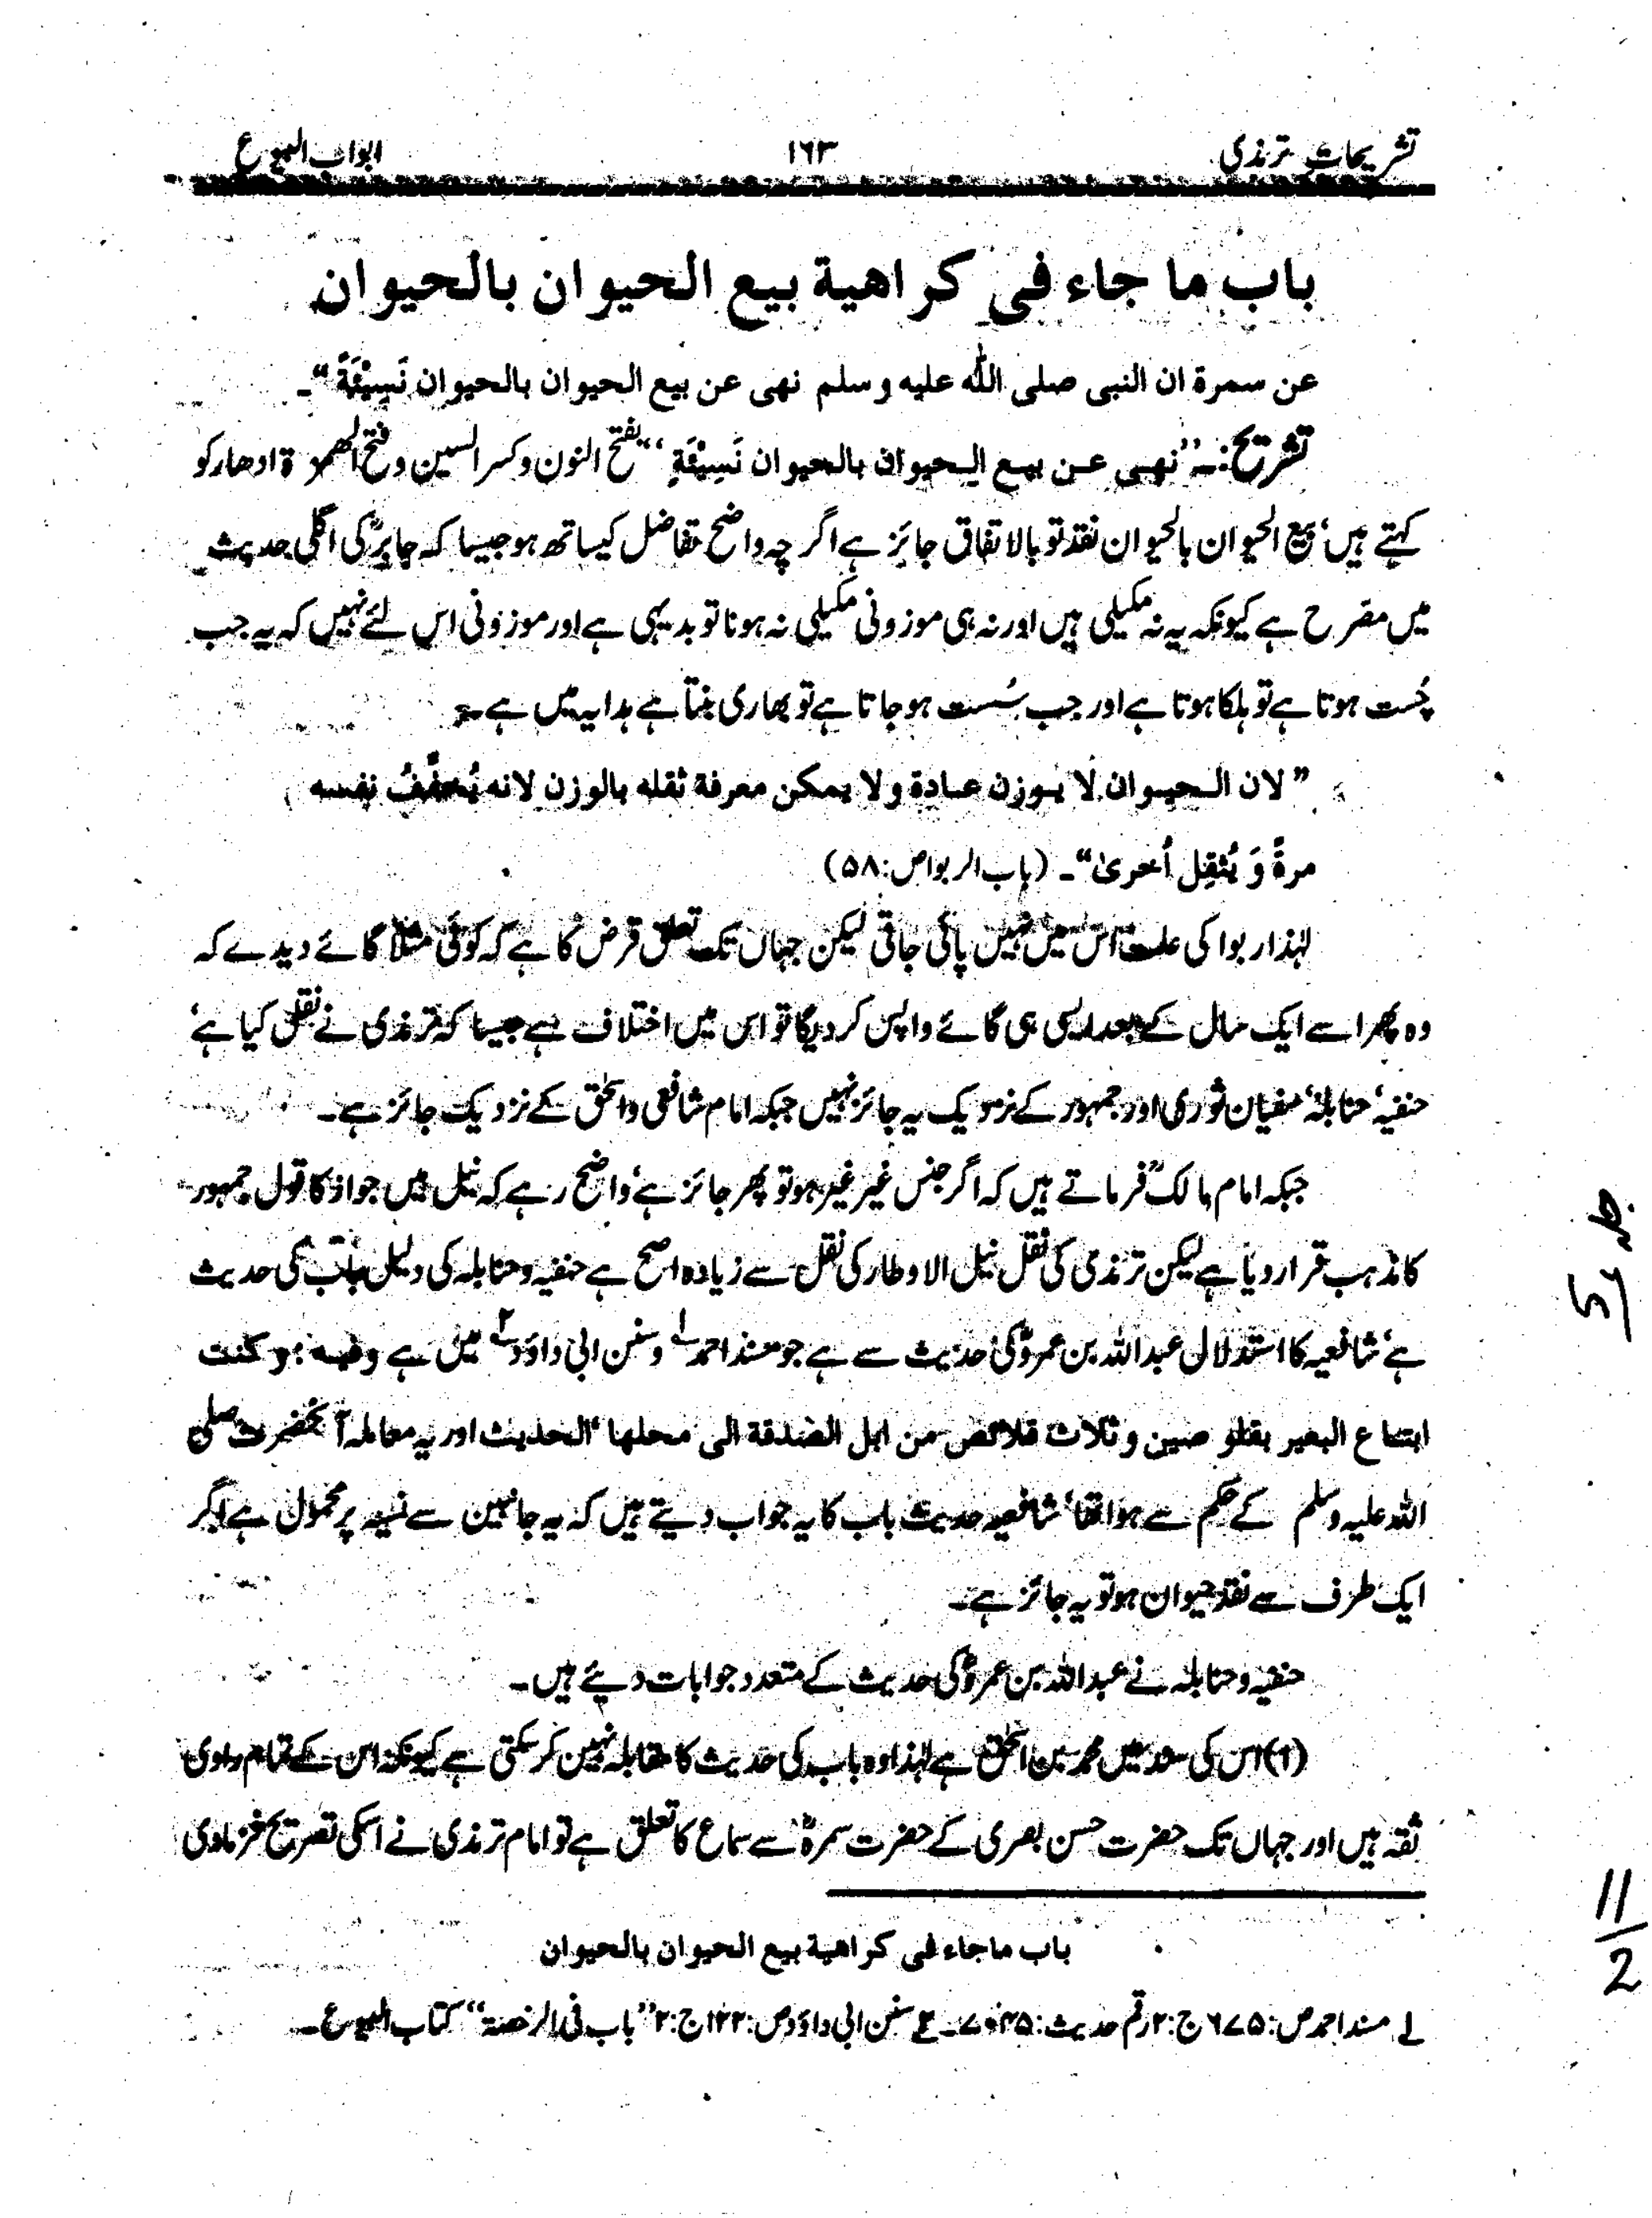 تشریحات ترمذی
۱۶۳
ابواب البیوع
باب ما جاء فی کراهیة بیع الحیوان بالحیوان
عن سمرة ان النبی صلی الله علیه وسلم نهی عن بیع الحیوان بالحیوان نَسِیْئَةً“۔
تشریح:۔ ’’نهی عن بیع الحیوان بالحیوان نَسِیْئَةٍ‘‘ بفتح النون وکسر السین وفتح الهمزة ادھار کو
کہتے ہیں، بیع الحیوان بالحیوان نقد تو بالاتفاق جائز ہے اگر چہ واضح تفاضل کیساتھ ہو جیسا کہ جابرؓ کی اگلی حدیث
میں مصرح ہے کیونکہ یہ نہ مکیلی ہیں اور نہ ہی موزونی مکیلی نہ ہونا تو بدیہی ہے اور موزونی اس لئے نہیں کہ یہ جب
چُست ہوتا ہے تو ہلکا ہوتا ہے اور جب سُست ہو جاتا ہے تو بھاری بنتا ہے ہدایہ میں ہے۔
”لان الحیوان لا یوزن عادة ولا یمکن معرفة ثقله بالوزن لانه یُخَفِّفُ نفسه
مرةً وَ یُثقِل اُخریٰ“۔ (باب الربوا ص:۵۸)
لہٰذا ربوا کی علت اس میں نہیں پائی جاتی لیکن جہاں تک تعلق قرض کا ہے کہ کوئی مثلاً گائے دیدے کہ
وہ پھر اسے ایک سال کے بعد ایسی ہی گائے واپس کر دیگا تو اس میں اختلاف ہے جیسا کہ ترمذی نے نقل کیا ہے،
حنفیہ، حنابلہ، سفیان ثوری اور جمہور کے نزدیک یہ جائز نہیں جبکہ امام شافعی واسحٰق کے نزدیک جائز ہے۔
جبکہ امام مالکؒ فرماتے ہیں کہ اگر جنس غیر غیر ہو تو پھر جائز ہے، واضح رہے کہ نیل میں جواز کا قول جمہور
کا مذہب قرار دیا ہے لیکن ترمذی کی نقل نیل الاوطار کی نقل سے زیادہ اصح ہے حنفیہ وحنابلہ کی دلیل باب کی حدیث
ہے، شافعیہ کا استدلال عبداللہ بن عمروؓ کی حدیث سے ہے جو مسند احمد۱؎ وسنن ابی داؤد۲؎ میں ہے وفیه: وکنت
ابتاع البعیر بقلوصین وثلاث قلائص من ابل الصدقة الی محلها ‘‘الحدیث اور یہ معاملہ آنحضرت صلی
اللہ علیہ وسلم کے حکم سے ہوا تھا، شافعیہ حدیث باب کا یہ جواب دیتے ہیں کہ یہ جانبین سے نسیہ پر محمول ہے اگر
ایک طرف سے نقد حیوان ہو تو یہ جائز ہے۔
حنفیہ وحنابلہ نے عبداللہ بن عمروؓ کی حدیث کے متعدد جوابات دیئے ہیں۔
(۱) اس کی سند میں محمد بن اسحٰق ہے لہٰذا وہ باب کی حدیث کا مقابلہ نہیں کر سکتی ہے کیونکہ اس کے تمام راوی
ثقہ ہیں اور جہاں تک حضرت حسن بصری کے حضرت سمرہؓ سے سماع کا تعلق ہے تو امام ترمذی نے اسکی تصریح فرمادی
باب ماجاء فی کراهیة بیع الحیوان بالحیوان
۱؎ مسند احمد ص:۶۷۵ ج:۲ رقم حدیث:۷۰۲۵۔ ۲؎ سنن ابی داؤد ص:۱۲۲ ج:۲ ’’باب فی الرخصة‘‘ کتاب البیوع۔
جلد 5
11/2